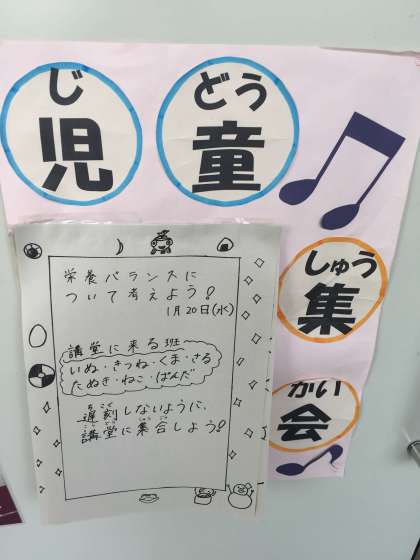 じ
児
どう
童
しゅう
集
かい
会
栄養バランスに
ついて考えよう!
1月20日(水)
講堂に来る班
いぬ・きつね・くま・さる
たぬき・ねこ・ぱんだ
ちこく
遅刻しないように、
こうどう しゅうごう
講堂に集合しよう!